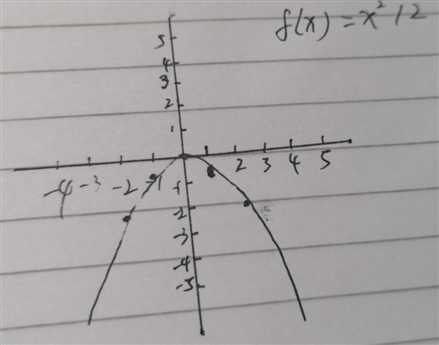 f(x) = x² / 2
5
4
3
2
1
-4 -3 -2 -1 2 3 4 5
-1
-2
-3
-4
-5